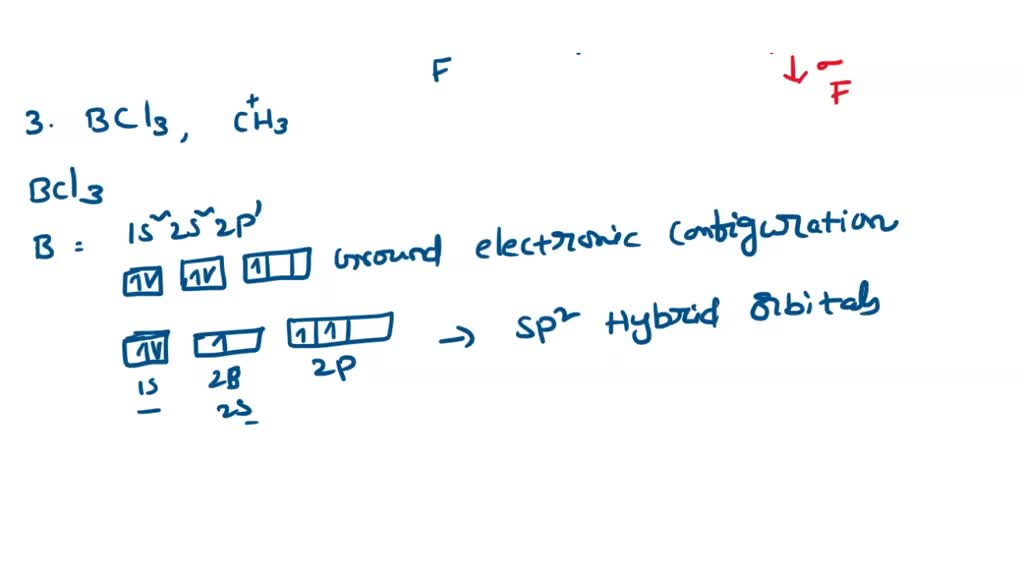 F
σ
F
3. BCl3, CH3+
BCl3
B = 1s²2s²2p¹
1V 1V 1 Ground electronic configuration
1V 1 1 1 → sp² Hybrid orbitals
1s 2B 2p
2s